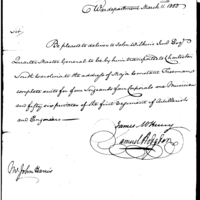 War department March 11th 1800
Sir,
Be pleased to deliver to John Wilkins Junr Esqr
Quarter Master General to be by him transported to Charleston
South Carolina to the address of Major Constant Freeman
complete suits for four Sergeants four Corporals one Musician
and fifty six privates of the first Regiment of Artillerists
and Engineers —
James McHenry
Samuel Hodgdon
Mr John Harris